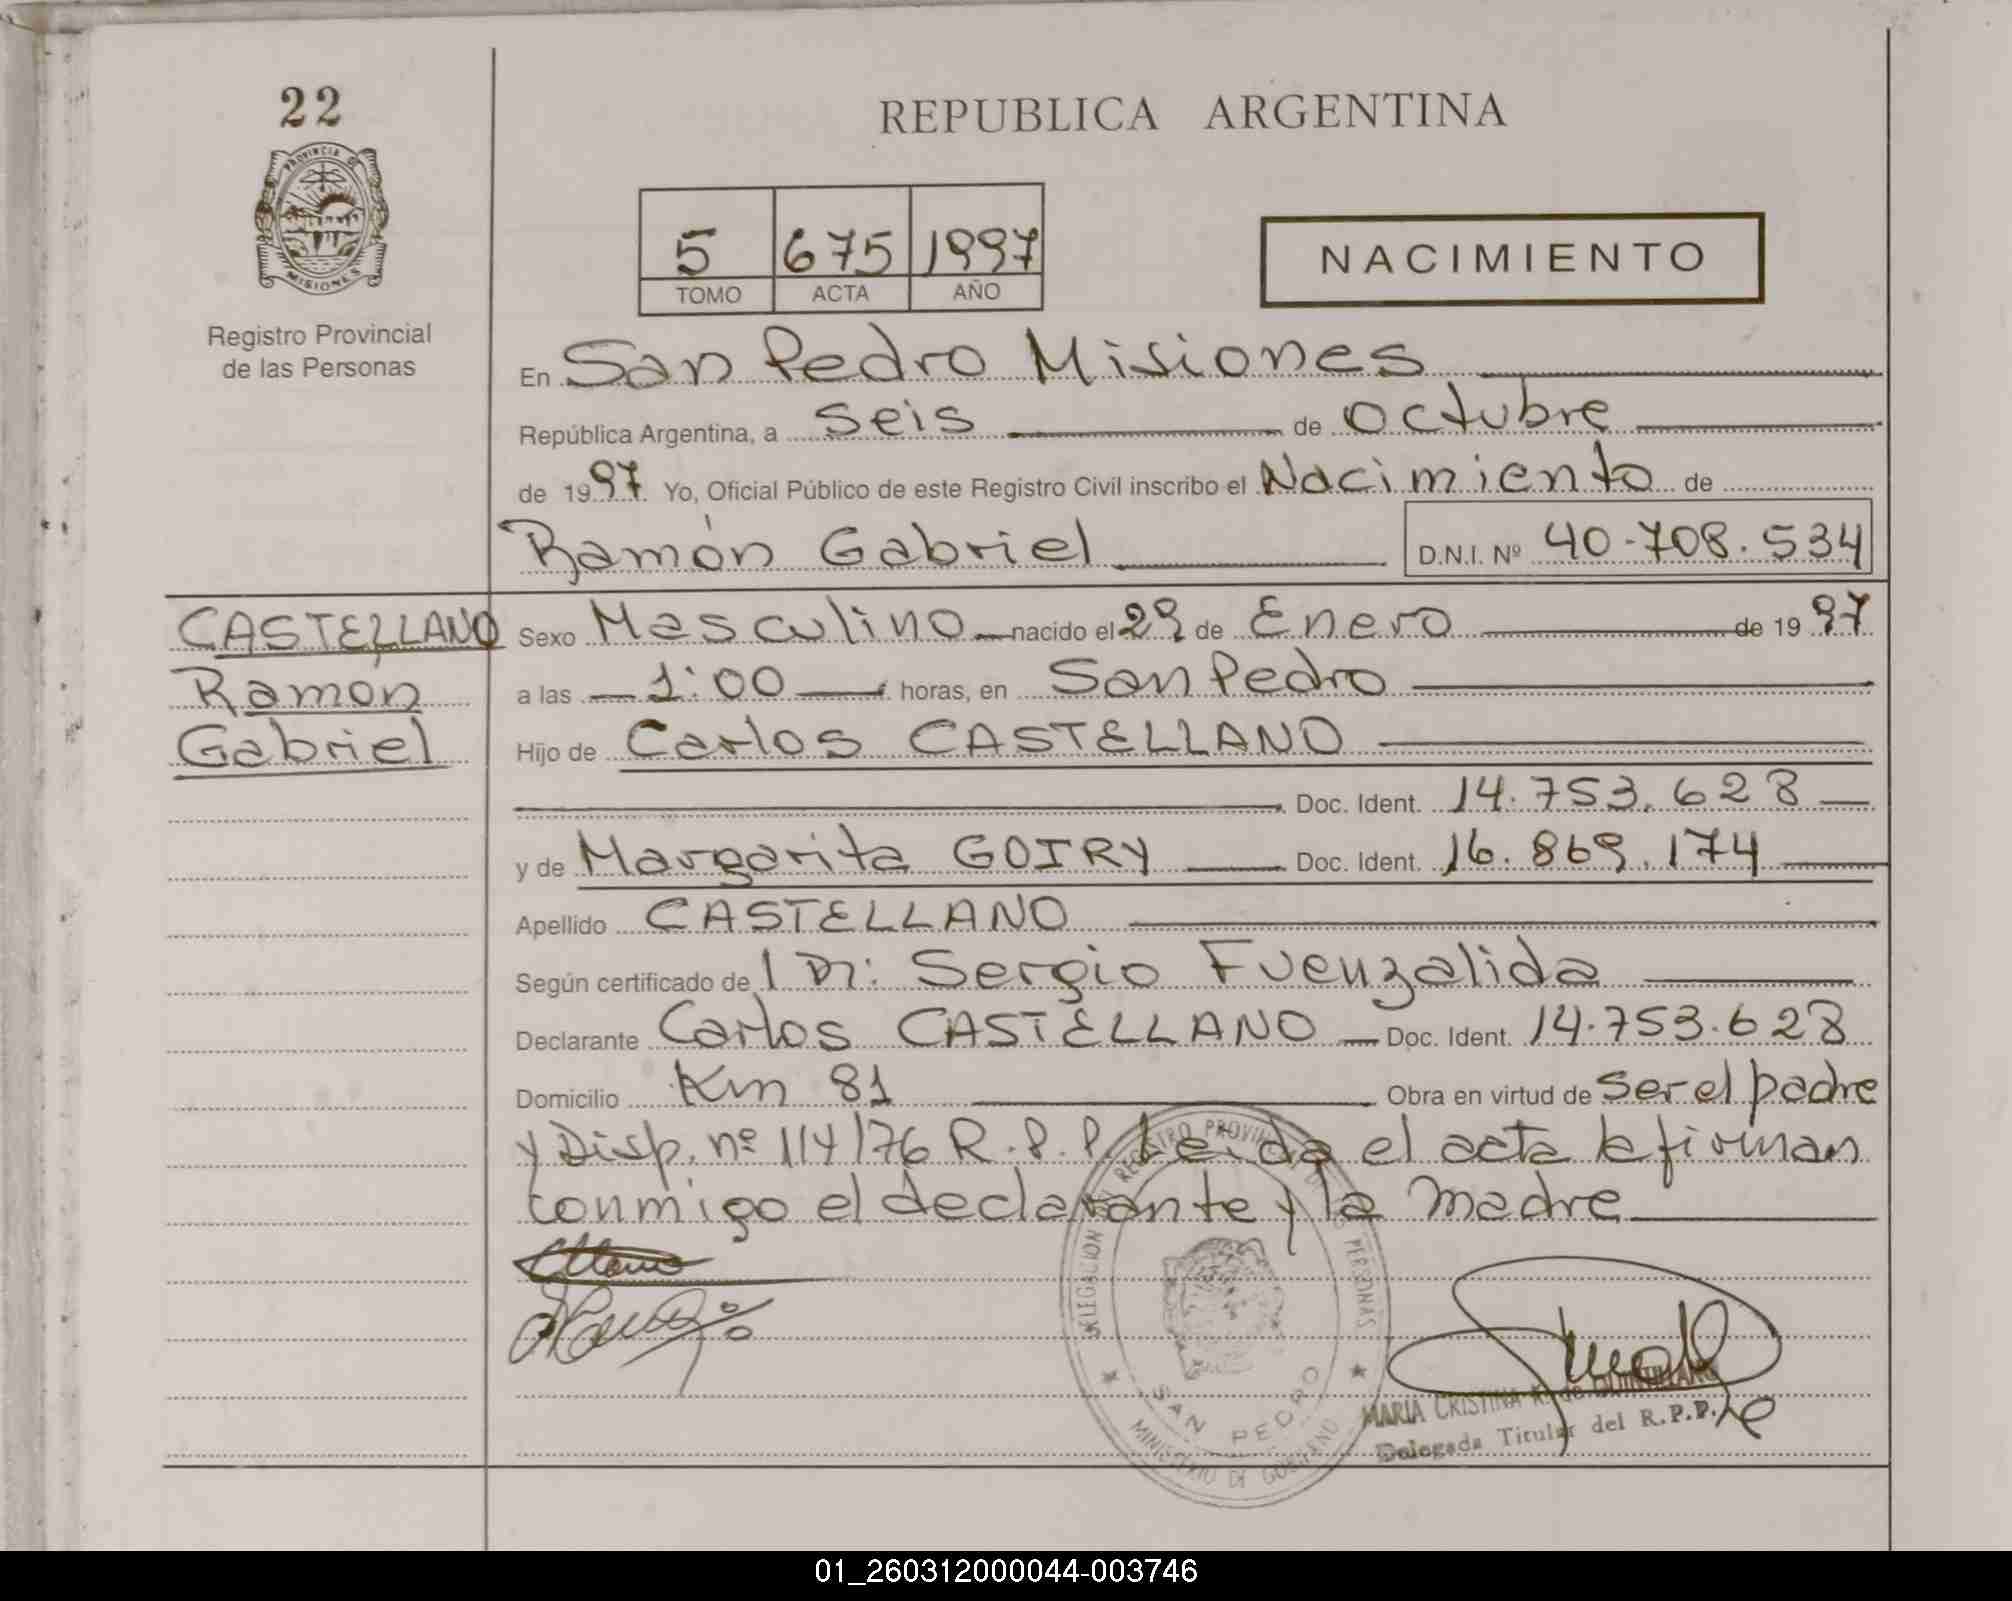 22
PROVINCIA DE
MISIONES
Registro Provincial
de las Personas
REPUBLICA ARGENTINA
5 675 1997
TOMO ACTA AÑO
NACIMIENTO
En San Pedro Misiones
República Argentina, a seis de Octubre
de 1997 Yo, Oficial Público de este Registro Civil inscribo el Nacimiento de
Ramón Gabriel D.N.I. Nº 40.708.534
CASTELLANO
Ramon
Gabriel
Sexo Masculino nacido el 29 de Enero de 1997
a las 1:00 horas, en San Pedro
Hijo de Carlos CASTELLANO
Doc. Ident. 14.753.628
y de Margarita GOIRY Doc. Ident. 16.869.174
Apellido CASTELLANO
Según certificado del Dr: Sergio Fuenzalida
Declarante Carlos CASTELLANO Doc. Ident. 14.753.628
Domicilio Km 81 Obra en virtud de ser el padre
y Disp. nº 114/76 R.P.P. Leida el acta la firman
conmigo el declarante y la madre
DELEGACION DEL REGISTRO PROVINCIAL DE LAS PERSONAS
SAN PEDRO
MINISTERIO DE GOBIERNO
MARIA CRISTINA K. de
Delegada Titular del R.P.P.
01_260312000044-003746